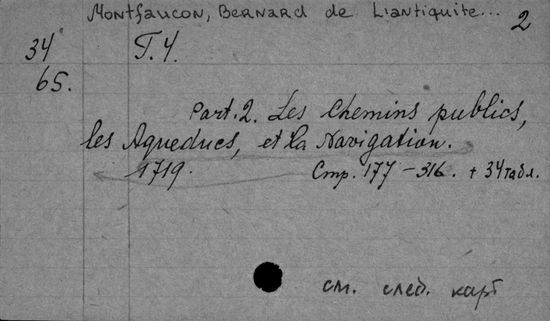 Montfaucon, Bernard de L'antiquite... 2
34 T. 4.
65.
Part. 2. Les Chemins publics,
les Aqueducs, et la Navigation.
1719. Стр. 177 - 316. + 34 табл.
см. след. карт